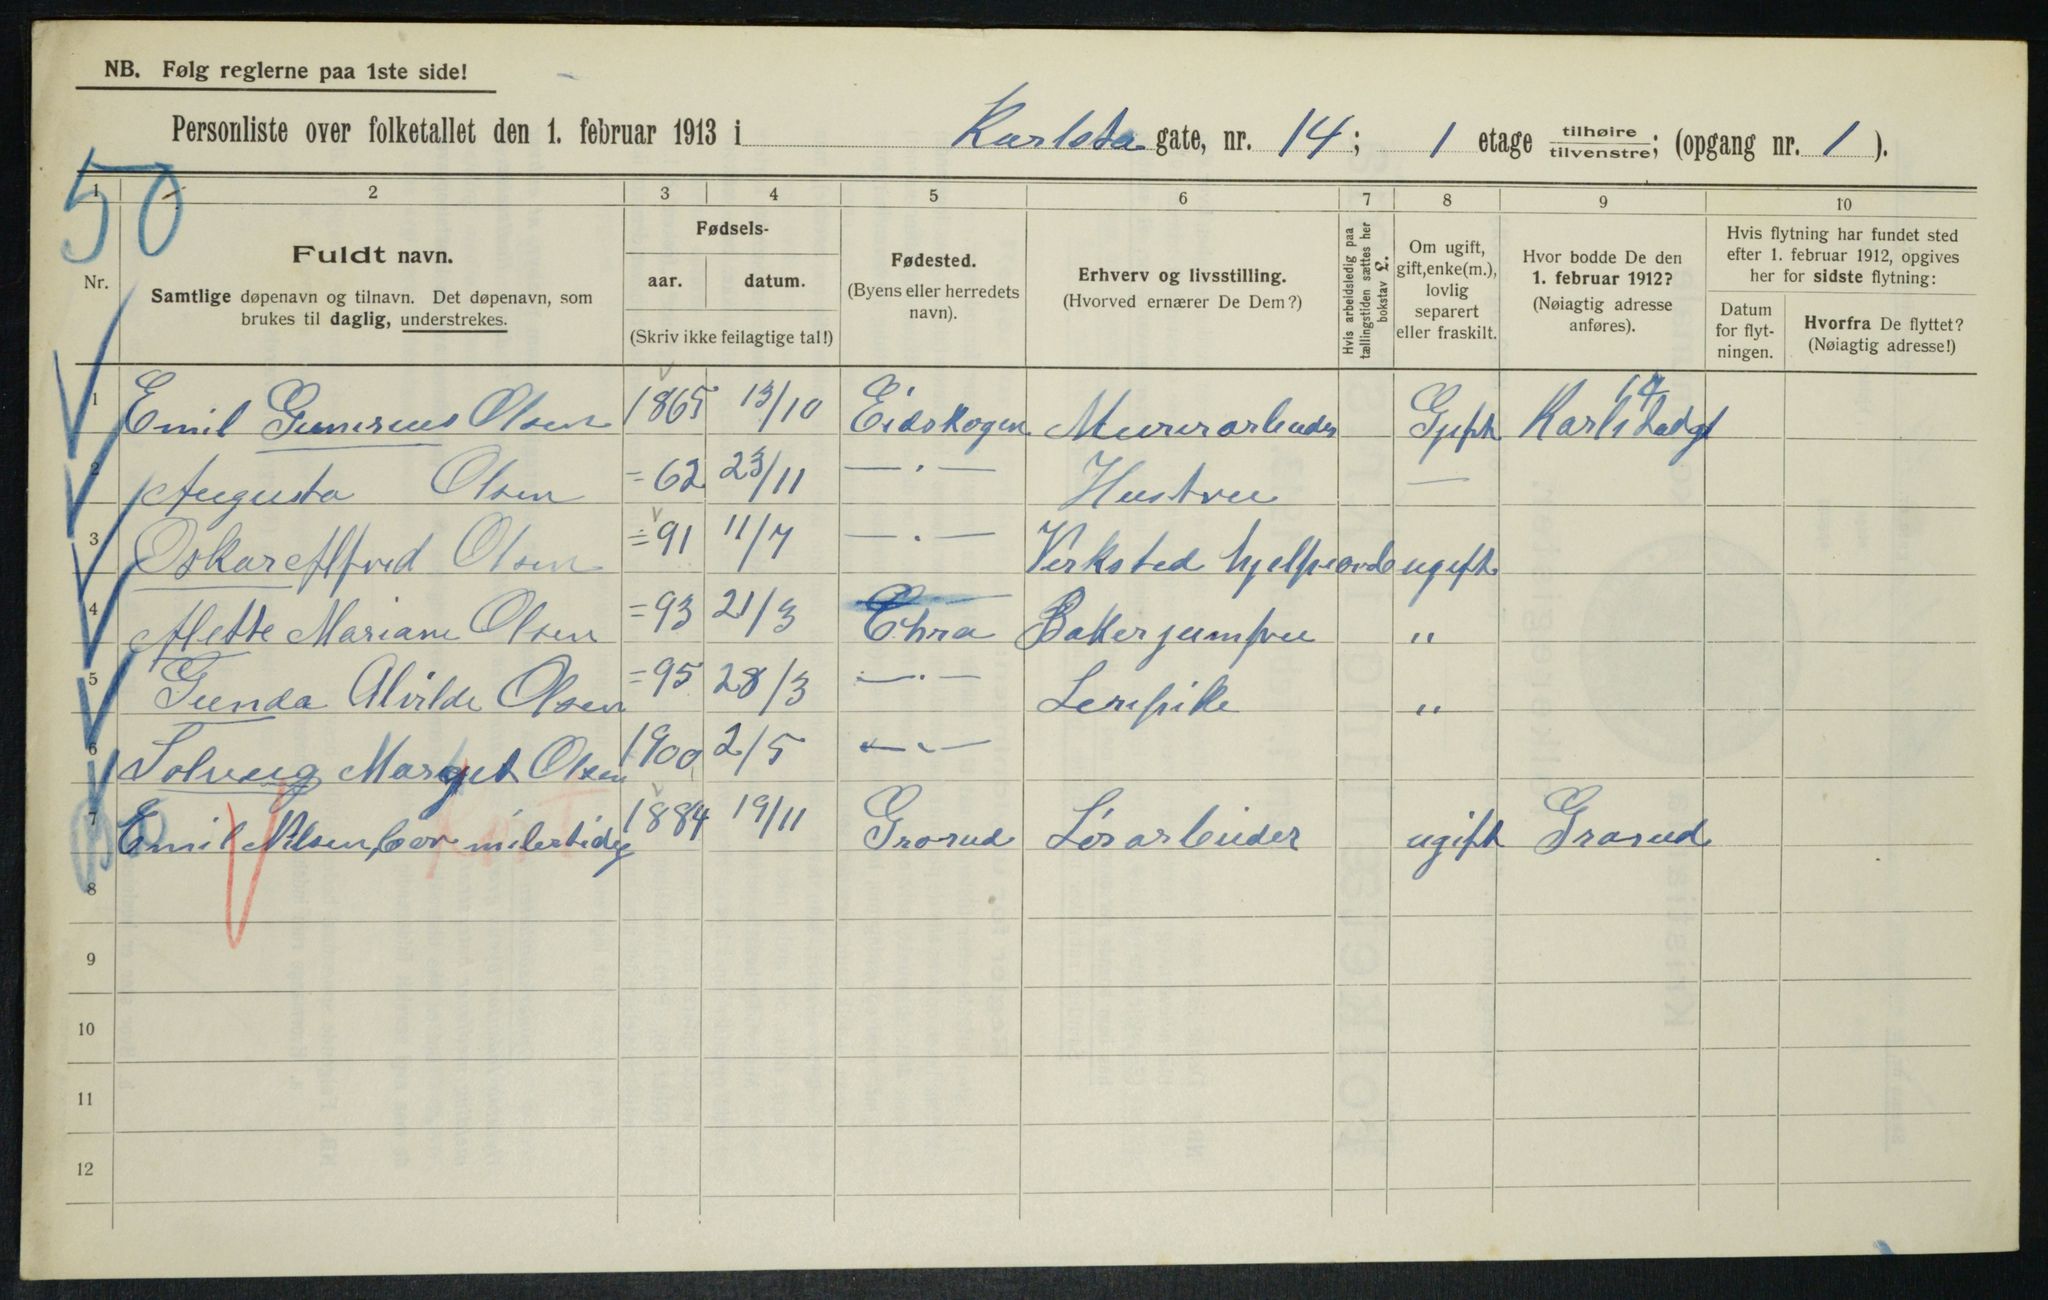 NB. Følg reglerne paa 1ste side!
Personliste over folketallet den 1. februar 1913 i Karlsta gate, nr. 14; 1 etage tilhøire tilvenstre; (opgang nr. 1 ).
50
1 2 3 4 5 6 7 8 9 10
Nr.
Fuldt navn.
Samtlige døpenavn og tilnavn. Det døpenavn, som
brukes til daglig, understrekes.
Fødsels-
aar. datum.
(Skriv ikke feilagtige tal!)
Fødested.
(Byens eller herredets
navn).
Erhverv og livsstilling.
(Hvorved ernærer De Dem?)
Hvis arbeidsledig paa
tællingstiden sættes her
bokstav £.
Om ugift,
gift, enke(m.),
lovlig
separert
eller fraskilt.
Hvor bodde De den
1. februar 1912?
(Nøiagtig adresse
anføres).
Hvis flytning har fundet sted
efter 1. februar 1912, opgives
her for sidste flytning:
Datum
for flyt-
ningen.
Hvorfra De flyttet?
(Nøiagtig adresse!)
1 Emil Olsen 1865 13/10 Eidskogen Murerarbeider Gift 14 Karlstadgt
2 Augusta Olsen = 62 23/11 — . — Hustru —
3 Oskar Alfred Olsen = 91 11/7 — . — Verksted ugift
4 Alette Mariane Olsen = 93 21/3 Chra Bakerjumfru "
5 Gunda Alvilde Olsen = 95 28/3 — . — Lerepike "
6 Solveig Margit Olsen 1900 2/5 — . —
7 Emil Nilsen, bor milertidig 1884 19/11 Grorud Løsarbeider ugift Grorud
8
9
10
11
12